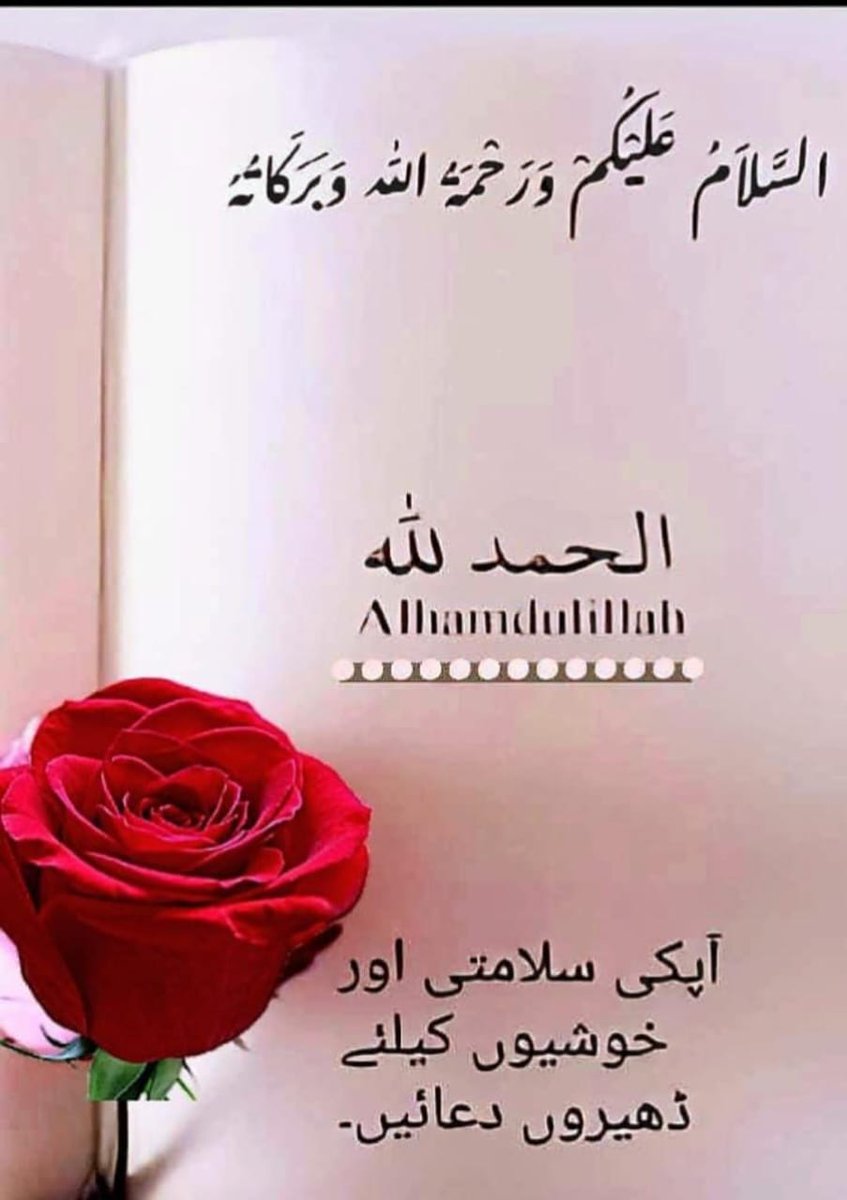 السَّلاَمُ عَلَيْكُمْ وَرَحْمَةُ اللہ وَبَرَكَاتُهُ
الحمد للّٰه
Alhamdulillah
آپکی سلامتی اور
خوشیوں کیلئے
ڈھیروں دعائیں۔